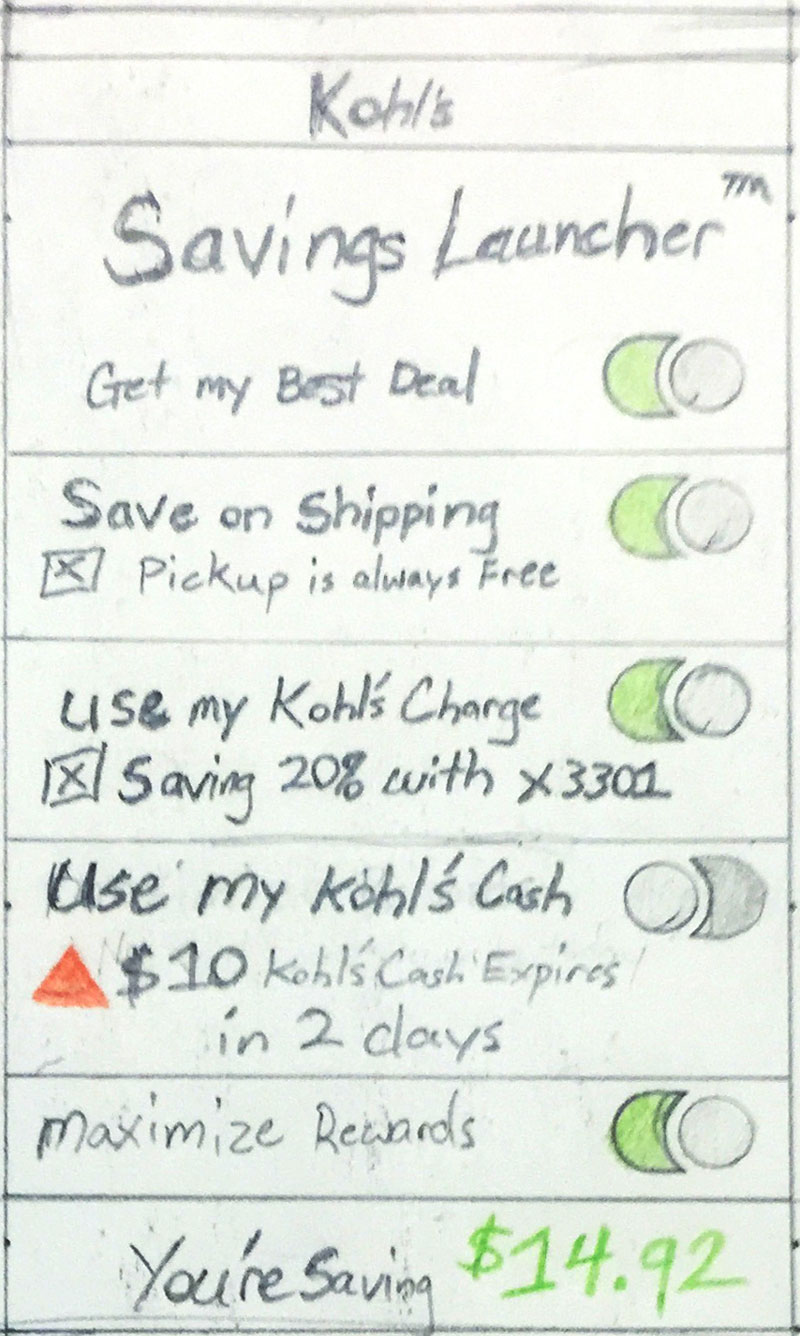 Kohl's
Savings Launcher™
Get my Best Deal
Save on Shipping
Pickup is always Free
Use my Kohl's Charge
Saving 20% with x3301
Use my Kohl's Cash
$10 Kohl's Cash Expires
in 2 days
Maximize Rewards
You're Saving $14.92